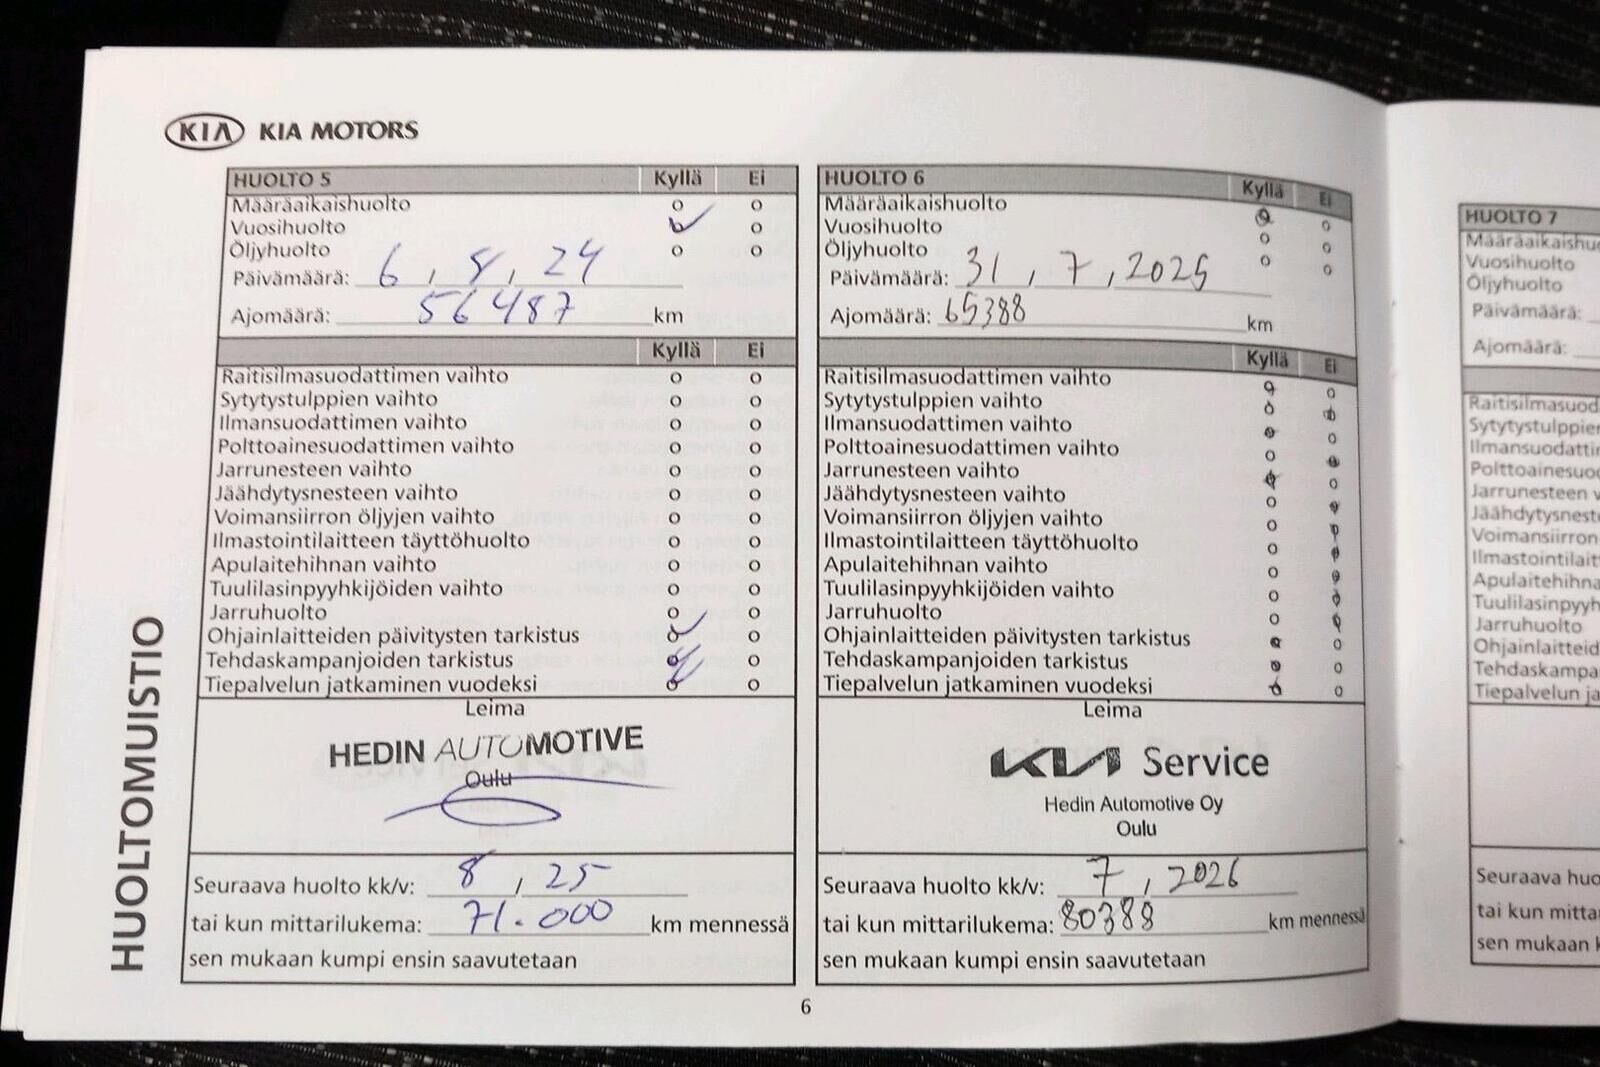 KIA KIA MOTORS
HUOLTOMUISTIO
HUOLTO 5 Kyllä Ei
Määräaikaishuolto o o
Vuosihuolto o
Öljyhuolto o o
Päivämäärä: 6 , 8 , 24
Ajomäärä: 56487 km
Kyllä Ei
Raitisilmasuodattimen vaihto o o
Sytytystulppien vaihto o o
Ilmansuodattimen vaihto o o
Polttoainesuodattimen vaihto o o
Jarrunesteen vaihto o o
Jäähdytysnesteen vaihto o o
Voimansiirron öljyjen vaihto o o
Ilmastointilaitteen täyttöhuolto o o
Apulaitehihnan vaihto o o
Tuulilasinpyyhkijöiden vaihto o o
Jarruhuolto o o
Ohjainlaitteiden päivitysten tarkistus o o
Tehdaskampanjoiden tarkistus o o
Tiepalvelun jatkaminen vuodeksi o o
Leima
HEDIN AUTOMOTIVE
Oulu
Seuraava huolto kk/v: 8 , 25
tai kun mittarilukema: 71.000 km mennessä
sen mukaan kumpi ensin saavutetaan
HUOLTO 6 Kyllä Ei
Määräaikaishuolto o o
Vuosihuolto o o
Öljyhuolto o o
Päivämäärä: 31 , 7 , 2025
Ajomäärä: 65388 km
Kyllä Ei
Raitisilmasuodattimen vaihto o o
Sytytystulppien vaihto o o
Ilmansuodattimen vaihto o o
Polttoainesuodattimen vaihto o o
Jarrunesteen vaihto o o
Jäähdytysnesteen vaihto o o
Voimansiirron öljyjen vaihto o o
Ilmastointilaitteen täyttöhuolto o o
Apulaitehihnan vaihto o o
Tuulilasinpyyhkijöiden vaihto o o
Jarruhuolto o o
Ohjainlaitteiden päivitysten tarkistus o o
Tehdaskampanjoiden tarkistus o o
Tiepalvelun jatkaminen vuodeksi o o
Leima
KIA Service
Hedin Automotive Oy
Oulu
Seuraava huolto kk/v: 7 , 2026
tai kun mittarilukema: 80388 km mennessä
sen mukaan kumpi ensin saavutetaan
6
HUOLTO 7
Määräaikaishu
Vuosihuolto
Öljyhuolto
Päivämäärä:
Ajomäärä:
Raitisilmasuod
Sytytystulppien
Ilmansuodatti
Polttoainesuo
Jarrunesteen v
Jäähdytysnest
Voimansiirron
Ilmastointilait
Apulaitehihna
Tuulilasinpyyh
Jarruhuolto
Ohjainlaitteid
Tehdaskampa
Tiepalvelun ja
Seuraava huo
tai kun mitta
sen mukaan k